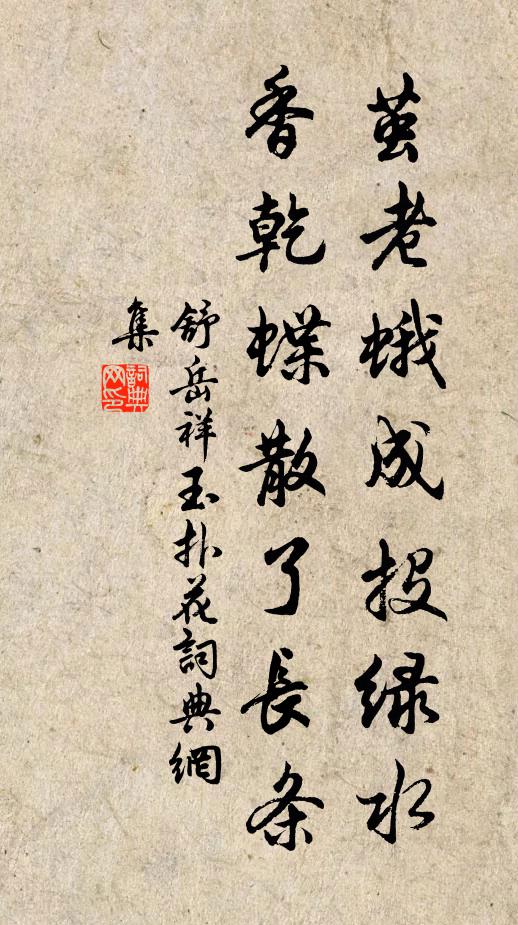 茧老蛾成投绿水
香乾蝶散了長条
舒岳祥玉扑花詞典網
集
詞典网印